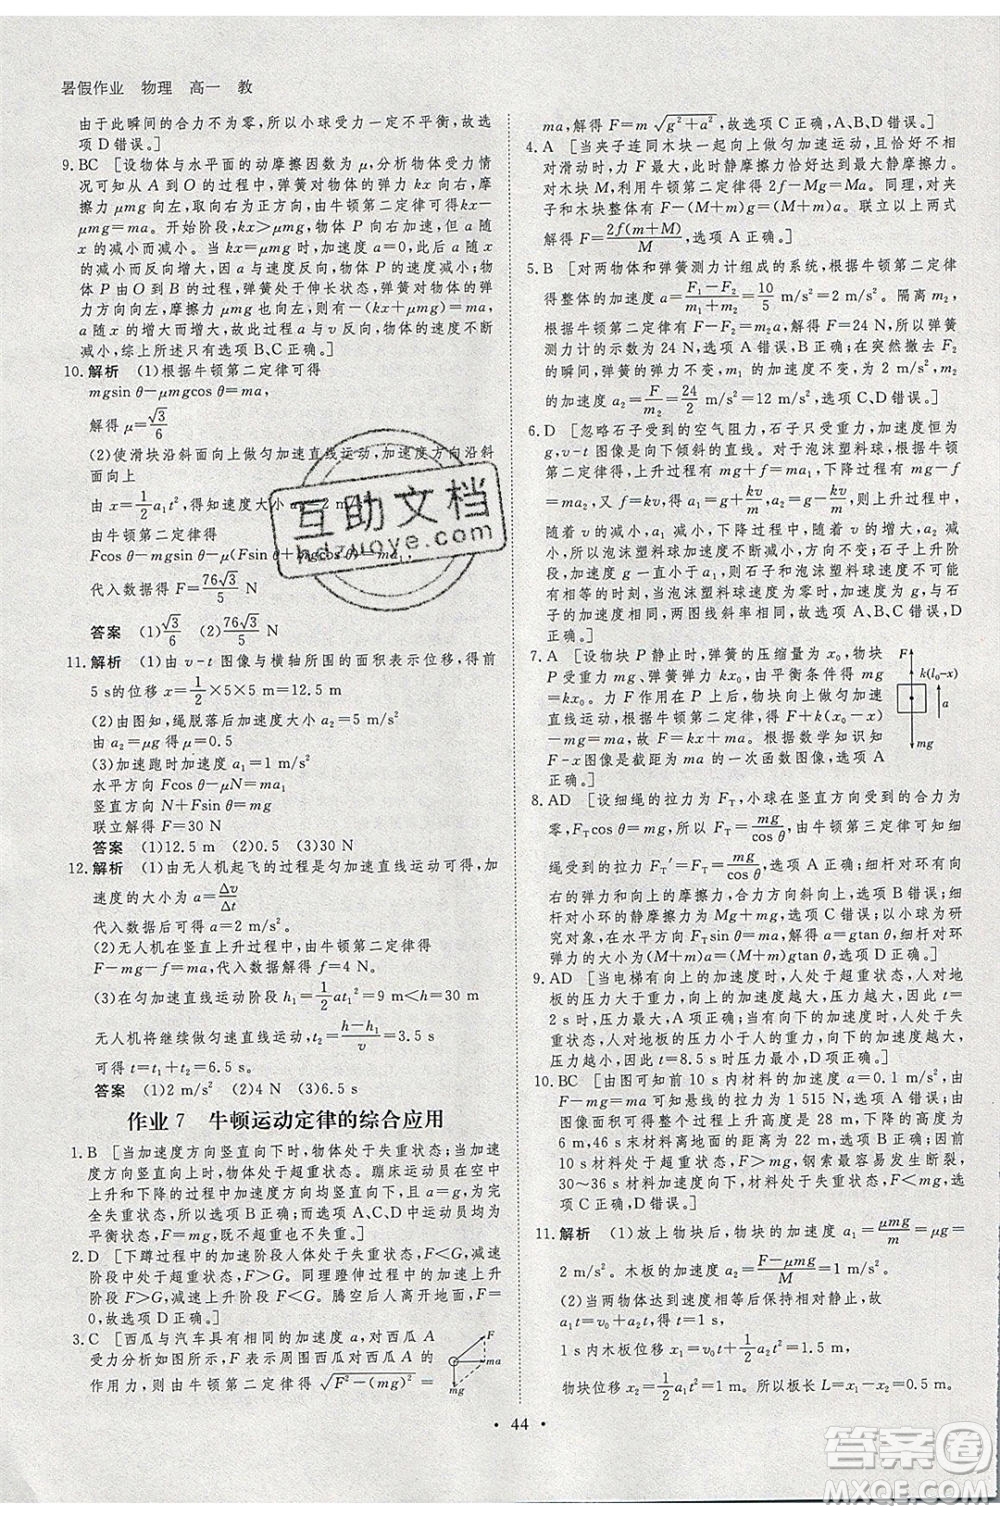 暑假作业 物理 高一 教
由于此瞬间的合力不为零,所以小球受力一定不平衡,故选
项D错误。]
9. BC [设物体与水平面的动摩擦因数为μ,分析物体受力情
况可知从A到O的过程中,弹簧对物体的弹力kx向右,摩
擦力μmg向左,取向右为正方向,由牛顿第二定律可得kx
-μmg=ma。开始阶段,kx>μmg,此时加速度a随着x
的减小而减小。当kx=μmg时,加速度a=0,此后a随x
的减小而反向增大,当物体P向右运动到O点时,kx=0;
当物体由O向B运动时,弹簧处于伸长状态,物体受到的
弹力向左,摩擦力仍向左,取向右为正方向,则-(kx+
μmg)=ma,a随x的增大而增大,故物体P从A到B过程,
a先减小后反向增大直到运动到B点,物体的速度不断
减小,综上所述只有选项B、C正确。]
10. 解析 (1)根据牛顿第二定律可得
mgsin θ-μmgcos θ=ma,
解得μ=√3/6
(2)使滑块沿斜面向上做匀加速直线运动,加速度方向沿斜
面向上
由x=1/2 a₁t²,得知加速度大小a₁=2 m/s²
由牛顿第二定律得
Fcos θ-mgsin θ-μ(Fsin θ+mgcos θ)=ma₁,
代入数据得F=76√3/5 N
答案 (1)√3/6 (2)76√3/5 N
11. 解析 (1)由v-t图像与横轴所围的面积表示位移,得前
5 s的位移x=1/2×5×5 m=12.5 m
(2)由图知,绳脱落后加速度大小a₂=5 m/s²
由a₂=μg得μ=0.5
(3)加速跑时加速度a₁=1 m/s²
水平方向Fcos θ-μN=ma₁
竖直方向N+Fsin θ=mg
联立解得F=30 N
答案 (1)12.5 m (2)0.5 (3)30 N
12. 解析 (1)由无人机起飞的过程是匀加速直线运动,加
速度的大小为a=Δv/Δt
代入数据可得a=2 m/s²
(2)无人机在竖直上升过程中,由牛顿第二定律得
F-mg=ma,代入数据得F=4 N。
(3)在匀加速运动阶段h₁=1/2 at₁²=9 m<h=30 m
无人机将继续做匀速直线运动,t₂=(h-h₁)/v=3.5 s
可得t=t₁+t₂=6.5 s。
答案 (1)2 m/s² (2)4 N (3)6.5 s
作业7 牛顿运动定律的综合应用
1. B [当加速度方向竖直向下时,物体处于失重状态;当加速
度方向竖直向上时,物体处于超重状态。蹦床运动员在
上升和下落过程中加速度方向均竖直向下,且a=g,处于
完全失重状态,所以A、C、D错误,B正确。]
2. D [下蹲过程中的加速阶段处于失重状态,F<G,减速
阶段中处于超重状态。同理蹬伸过程中的加速阶段F>
G,减速阶段处于失重状态,F<G。腾空后加速度为g,F=
0,故选项D正确。]
3. C [西瓜与汽车具有相同的加速度a,对西瓜A
受力分析如图,F表示周围西瓜对西瓜A的
作用力,则由牛顿第二定律得√(F²-(mg)²)=
F
ma
mg
ma,解得F=m√(g²+a²),故选项C正确,A、B、D错误。]
4. A [当夹子连同木块一起向上做匀加速运动,且恰好不相
对滑动时,力F最大,此时静摩擦力恰好达到最大静摩擦力。
对木块M,利用牛顿第二定律得2f-Mg=Ma。同理,对夹
子和木块整体有F-(M+m)g=(M+m)a。联立以上两式
解得F=2f(m+M)/M,选项A正确。]
5. B [对两物体和弹簧测力计组成的系统,根据牛顿第二定律
得整体的加速度a=(F₁-F₂)/(m₁+m₂)=10/5 m/s²=2 m/s²。隔离m₂,
根据牛顿第二定律有F-F₂=m₂a,解得F=24 N,所以弹簧
测力计的示数为24 N,选项A错误,B正确;在突然撤去F₂
的瞬间,弹簧的弹力不变,m₁的加速度不变,为2 m/s²,m₂
的加速度a₂=F/m₂=24/2 m/s²=12 m/s²,故选项C、D错误。]
6. D [忽略石子受到的空气阻力,石子只受重力,加速度恒定为
g,v-t图像是向下倾斜的直线。对于泡沫塑料球,根据牛顿第
二定律得,上升过程有mg+f=ma₁,又f=kv,解得a₁=g+kv/m,
随着v的减小,a₁减小。下降过程有mg-f=ma₂,a₂=g-kv/m,
随着v的增大,a₂减小,所以泡沫塑料球从上升到下降,加
速度始终在减小,泡沫塑料球的速度方向会变化;石子上升阶段,
加速度g小于a₁,则泡沫塑料球速度先减小到零。在石子和泡沫塑料球
都有速度的时刻,泡沫塑料球速度为零时,加速度为g,与石
子的加速度相同,两图线斜率相等,故A、B、C错误,D
正确。]
7. A [设物块P静止时,弹簧的压缩量为x₀,物块
P受重力mg、弹簧弹力kx₀,由平衡条件得mg
=kx₀。力F作用在P上后,物块向上做匀加速
直线运动,由牛顿第二定律,得F+k(x₀-x)-
mg=ma。化简得F=kx+ma。根据数学知识知
F-x图像是截距为ma的一次函数图像,选项A
正确。]
F
k(l₀-x)
a
mg
8. AD [设细绳的拉力为Fᴛ,小球在竖直方向受到的合力为
零,Fᴛcos θ=mg,所以Fᴛ=mg/cos θ,由牛顿第三定律可知细
绳受到的拉力Fᴛ′=Fᴛ=mg/cos θ,选项A正确;细杆对环有竖
直向上的支持力和水平向右的摩擦力,合力方向斜向上,选项B错误;细
杆对小环的静摩擦力为Ma,选项C错误;以小球为研
究对象,在水平方向Fᴛsin θ=ma,解得a=gtan θ,细杆对环
弹力大小为(M+m)a=(M+m)gtan θ,选项D正确。]
9. AD [当电梯有向上的加速度时,人处于超重状态,人对地
板的压力大于重力,向上的加速度越大,压力越大,因此t=
2 s时,压力最大,选项A正确,B错误;当有向下的加速度时,人处于失重
状态,人对地板的压力小于人的重力,向下的加速度越大,
压力越小,因此t=8.5 s时压力最小,选项C错误,D正确。]
10. BC [由图可知前10 s内材料的加速度a=0.1 m/s²,由
F-mg=ma可知悬线的拉力为1 515 N,选项A错误。由
图像面积可得整个过程上升高度是28 m,下降的高度为
8 m,46 s末材料离地面的距离为20 m,选项B正确。0~
10 s材料处于超重状态,F>mg,钢索最容易发生断裂,
30~36 s材料加速度向下,处于失重状态,F<mg,选项C
正确,D错误。]
11. 解析 (1)放上物块后,物块的加速度a₁=μmg/m=μg=
2 m/s²,木板的加速度a₂=(F-μmg)/M=1 m/s²。
(2)当两物体达到速度相等后保持相对静止,故
a₁t=v₀+a₂t,解得t=1 s,
1 s内木板位移x₁=v₀t+1/2 a₂t²=1.5 m,
物块位移x₂=1/2 a₁t²=1 m,所以板长L=x₁-x₂=0.5 m。
44
互助文档
hdzuoye.com
答案卷
MXQE.COM